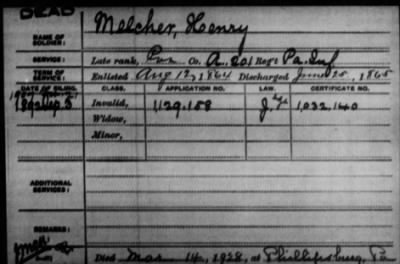 DEAD
NAME OF SOLDIER: Melcher, Henry
SERVICE: Late rank, Pvt Co. A, 201 Reg't Pa. Inf
TERM OF SERVICE: Enlisted Aug 17, 1864 Discharged June 25, 1865
DATE OF FILING. CLASS. APPLICATION NO. LAW. CERTIFICATE NO.
1892 Sep. 3 Invalid, 1129.158 1,032,140
Widow,
Minor,
ADDITIONAL SERVICES:
REMARKS:
Died Mar 14, 1928, at Phillipsburg, Pa